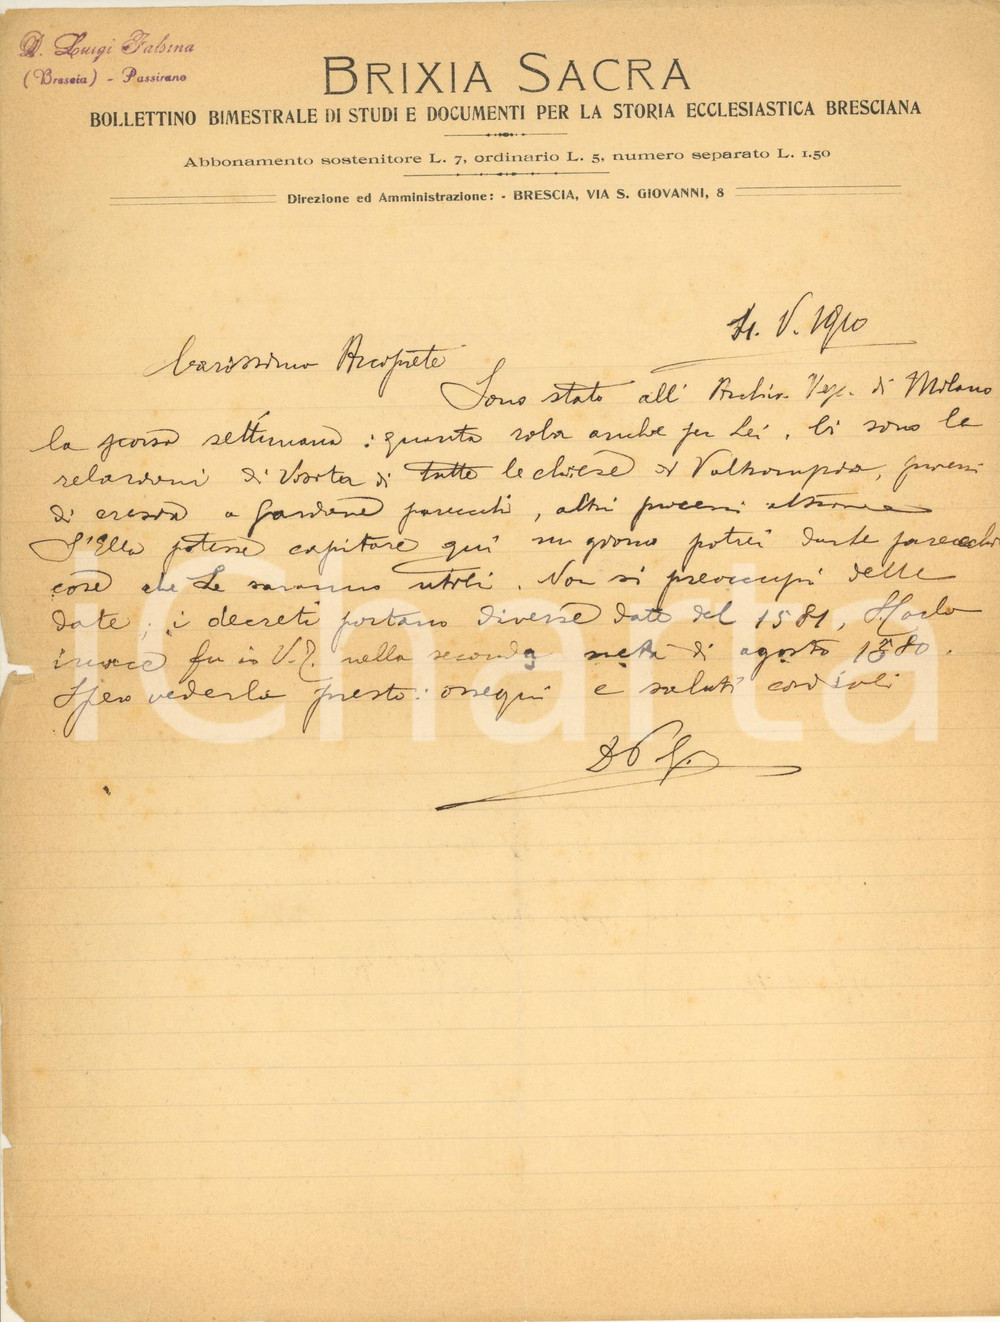 D. Luigi Falsina
(Brescia) - Passirano
BRIXIA SACRA
BOLLETTINO BIMESTRALE DI STUDI E DOCUMENTI PER LA STORIA ECCLESIASTICA BRESCIANA
Abbonamento sostenitore L. 7, ordinario L. 5, numero separato L. 1.50
Direzione ed Amministrazione: - BRESCIA, VIA S. GIOVANNI, 8
V. 1910
Carissimo Arciprete
Sono stato all' Archiv. Vesc. di Milano
la scorsa settimana: quanta roba anche per Lei. Ci sono le
relazioni di Visita di tutte le chiese di Valtrompia, processi
di eresia a Gardone parecchi, altri processi
S'Ella potesse capitare qui un giorno potrei darle parecchie
cose che Le saranno utili. Non si preoccupi delle
date; i decreti portano diverse date del 1581, S. Carlo
invece fu in V. T. nella seconda metà di agosto 1580.
Spero vederla presto: ossequi e saluti cordiali
iCharta